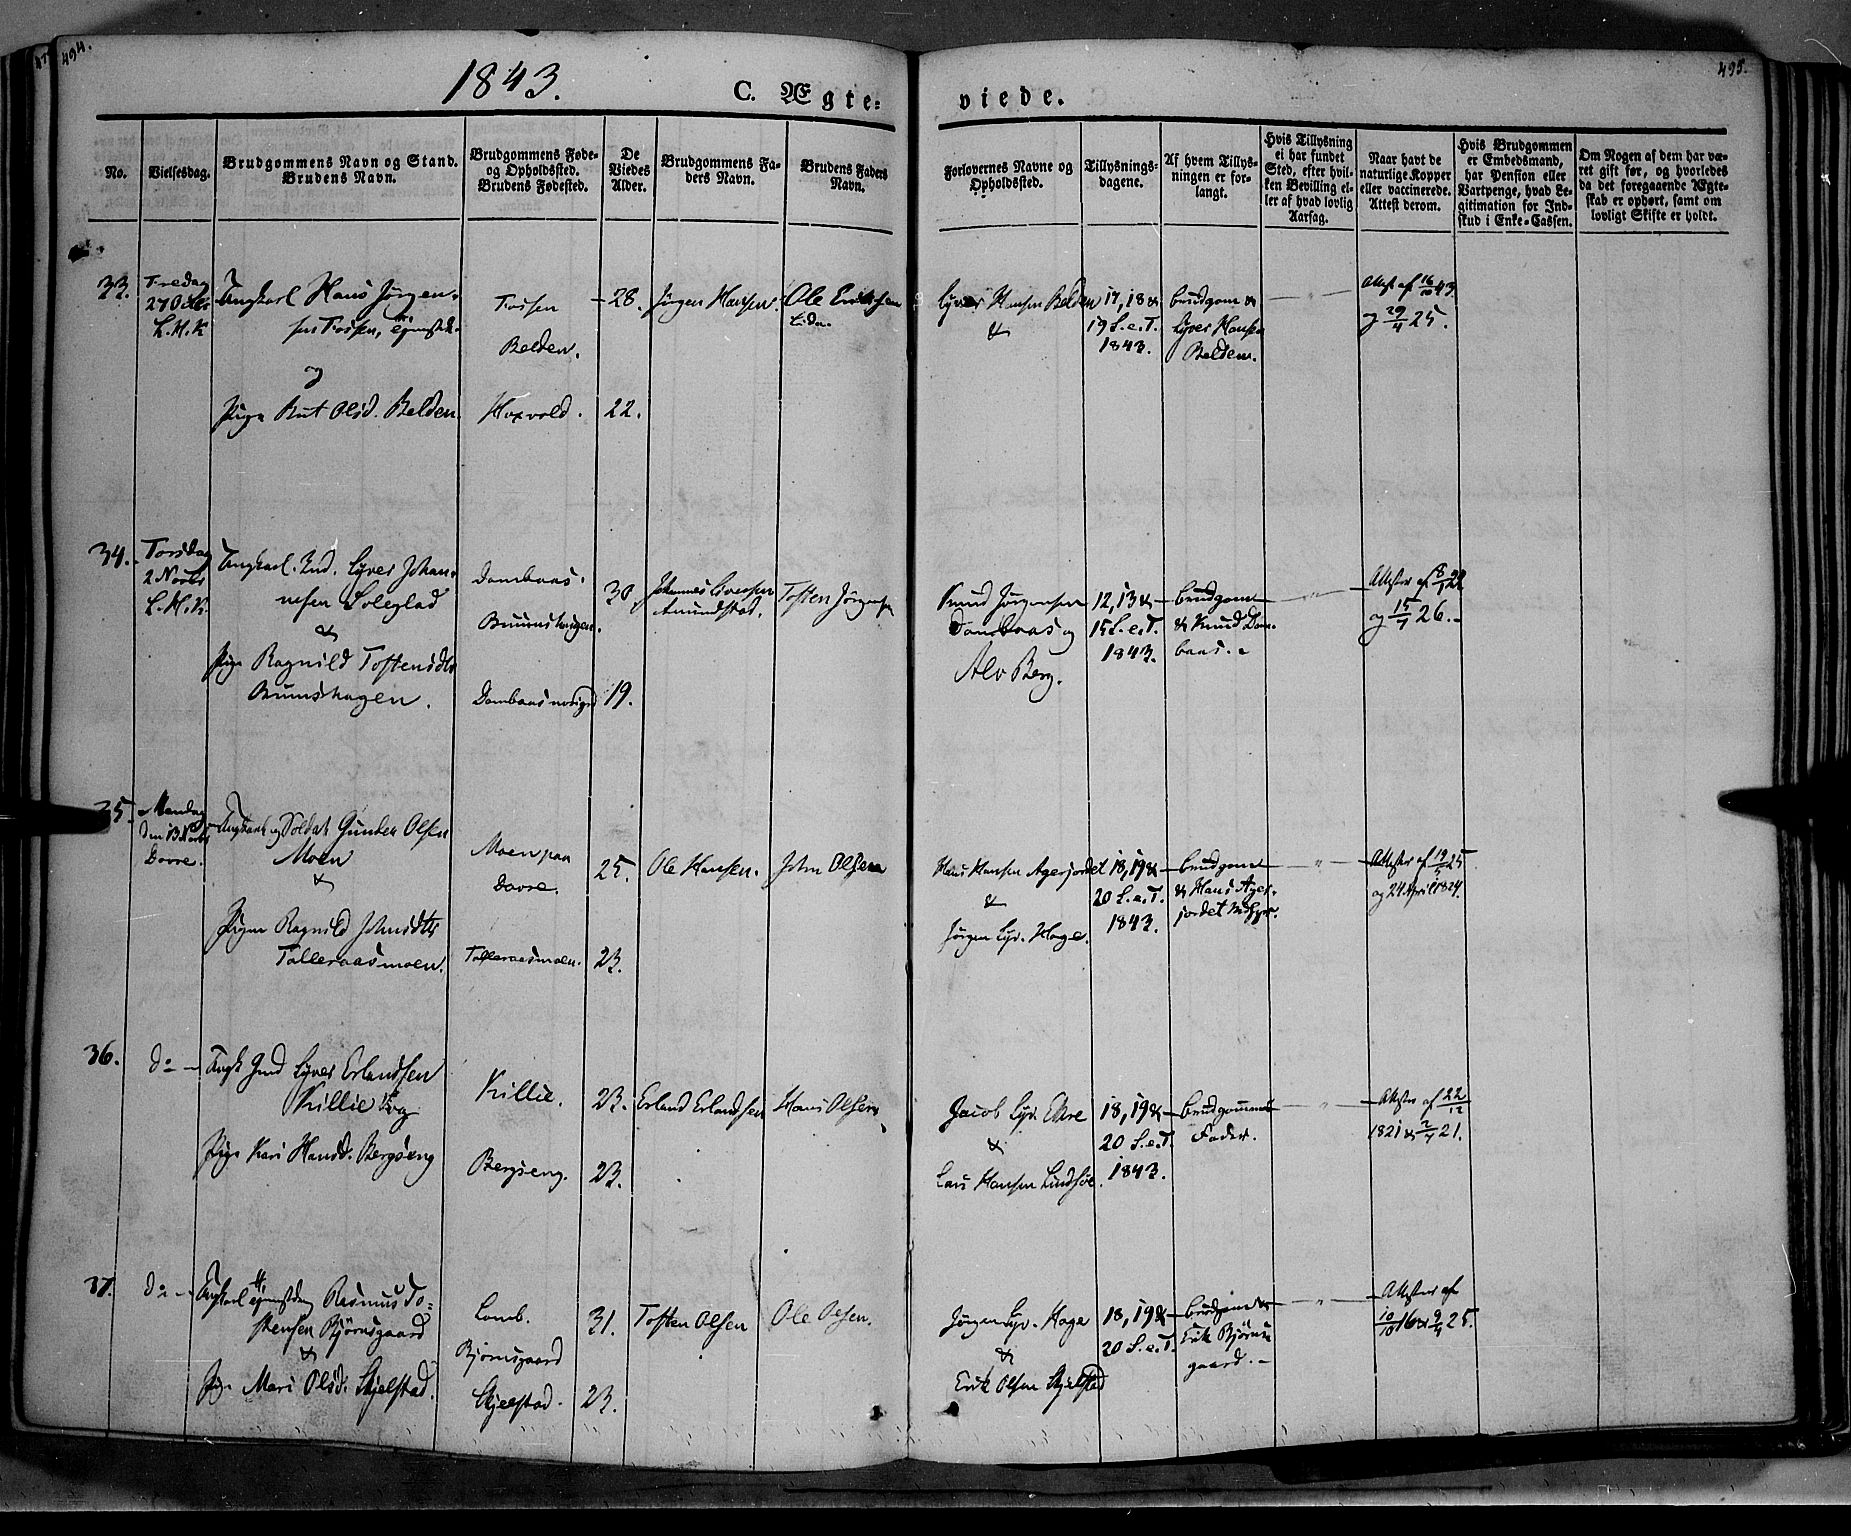 494.
495.
1843.
C. Ægte=
viede.
No.
Vielsesdag.
Brudgommens Navn og Stand.
Brudens Navn.
Brudgommens Føde-
og Opholdssted.
Brudens Fødested.
De
Viedes
Alder.
Brudgommens Fa-
ders Navn.
Brudens Faders
Navn.
Forlovernes Navne og
Opholdssted.
Tillysnings-
dagene.
Af hvem Tillys-
ningen er for-
langt.
Hvis Tillysning
ei har fundet
Sted, efter hvil-
ken Bevilling el-
ler af hvad lovlig
Aarsag.
Naar havt de
naturlige Kopper
eller vaccinerede.
Attest derom.
Hvis Brudgommen
er Embedsmand,
har Pension eller
Vartpenge, hvad Le-
gitimation for Ind-
skud i Enke-Cassen.
Om Nogen af dem har væ-
ret gift før, og hvorledes
da det foregaaende Ægte-
skab er ophørt, samt om
lovligt Skifte er holdt.
33.
Fredag
27 Octbr
L.H.K
Ungkarl Hans Jørgen-
sen Tofsen,
og
Pige Rut Olsd. Belden.
Tofsen
Belden.
Hoxvold.
28.
22.
Jørgen Hansen.
Ole Erichsen
Lyver Hansen Belden
&
17, 18 &
19 S.e.T.
1843.
brudgom &
Lyver Hansen
Belden.
Attest af 16/10 43
og 29/4 25.
34.
Torsdag
2 Novbr
L.H.K.
Ungkarl. Ind. Lyver Johan-
nesen Soleglad
&
Pige Ragnild Toftensdtr
Brumshagen.
Dombaas.
Brumshagen.
Dombaas
30
19.
Johannes Iversen
Amundstad.
Toften Jørgensen
Knud Jørgensen
Dombaas og
Alv Berg.
12, 13 &
15 S.e.T.
1843.
brudgom
& Knud Dom-
baas.
Attester af 8/7 22
og 15/7 26.
35.
Mandag
den 13 Novbr
Dovre.
Ungkarl og Soldat Gunder Olsen
Moen
&
Pigen Ragnild Johnsdtr
Tolleraasmoen.
Moen paa
Dovre.
Tolleraasmoen.
25.
23.
Ole Hansen.
John Olsen
Hans Hansen Agerjordet
&
Jørgen Lyv. Hage.
18, 19 &
20 S.e.T.
1843.
brudgom
& Hans Ager-
jordet
Attester af 19/5 25
og 24 April 1824.
36.
do
Ungk Lyver Erlandsen
Killie og
Pige Kari Hansd. Bergseng
Killie.
Bergseng.
23.
23.
Erland Erlandsen
Hans Olsen
Jacob Lyv. Ekre
&
Lars Hansen Lindsøe.
18, 19 &
20 S.e.T.
1843.
brudgommens
Fader.
Attester af 22/12
1821 & 2/7 21.
37.
do
Ungkarl Rasmus To-
stensen Bjørnsgaard
&
Pige Mari Olsd. Skjelstad.
Lomb.
Bjørnsgaard
Skjelstad.
31.
23.
Toften Olsen
Ole Olsen.
Jørgen Lyv. Hage
&
Erik Olsen Skjelstad
18, 19 &
20 S.e.T.
brudgom &
Erik Bjørns-
gaard.
Attester af
10/10 16 & 9/4 25.